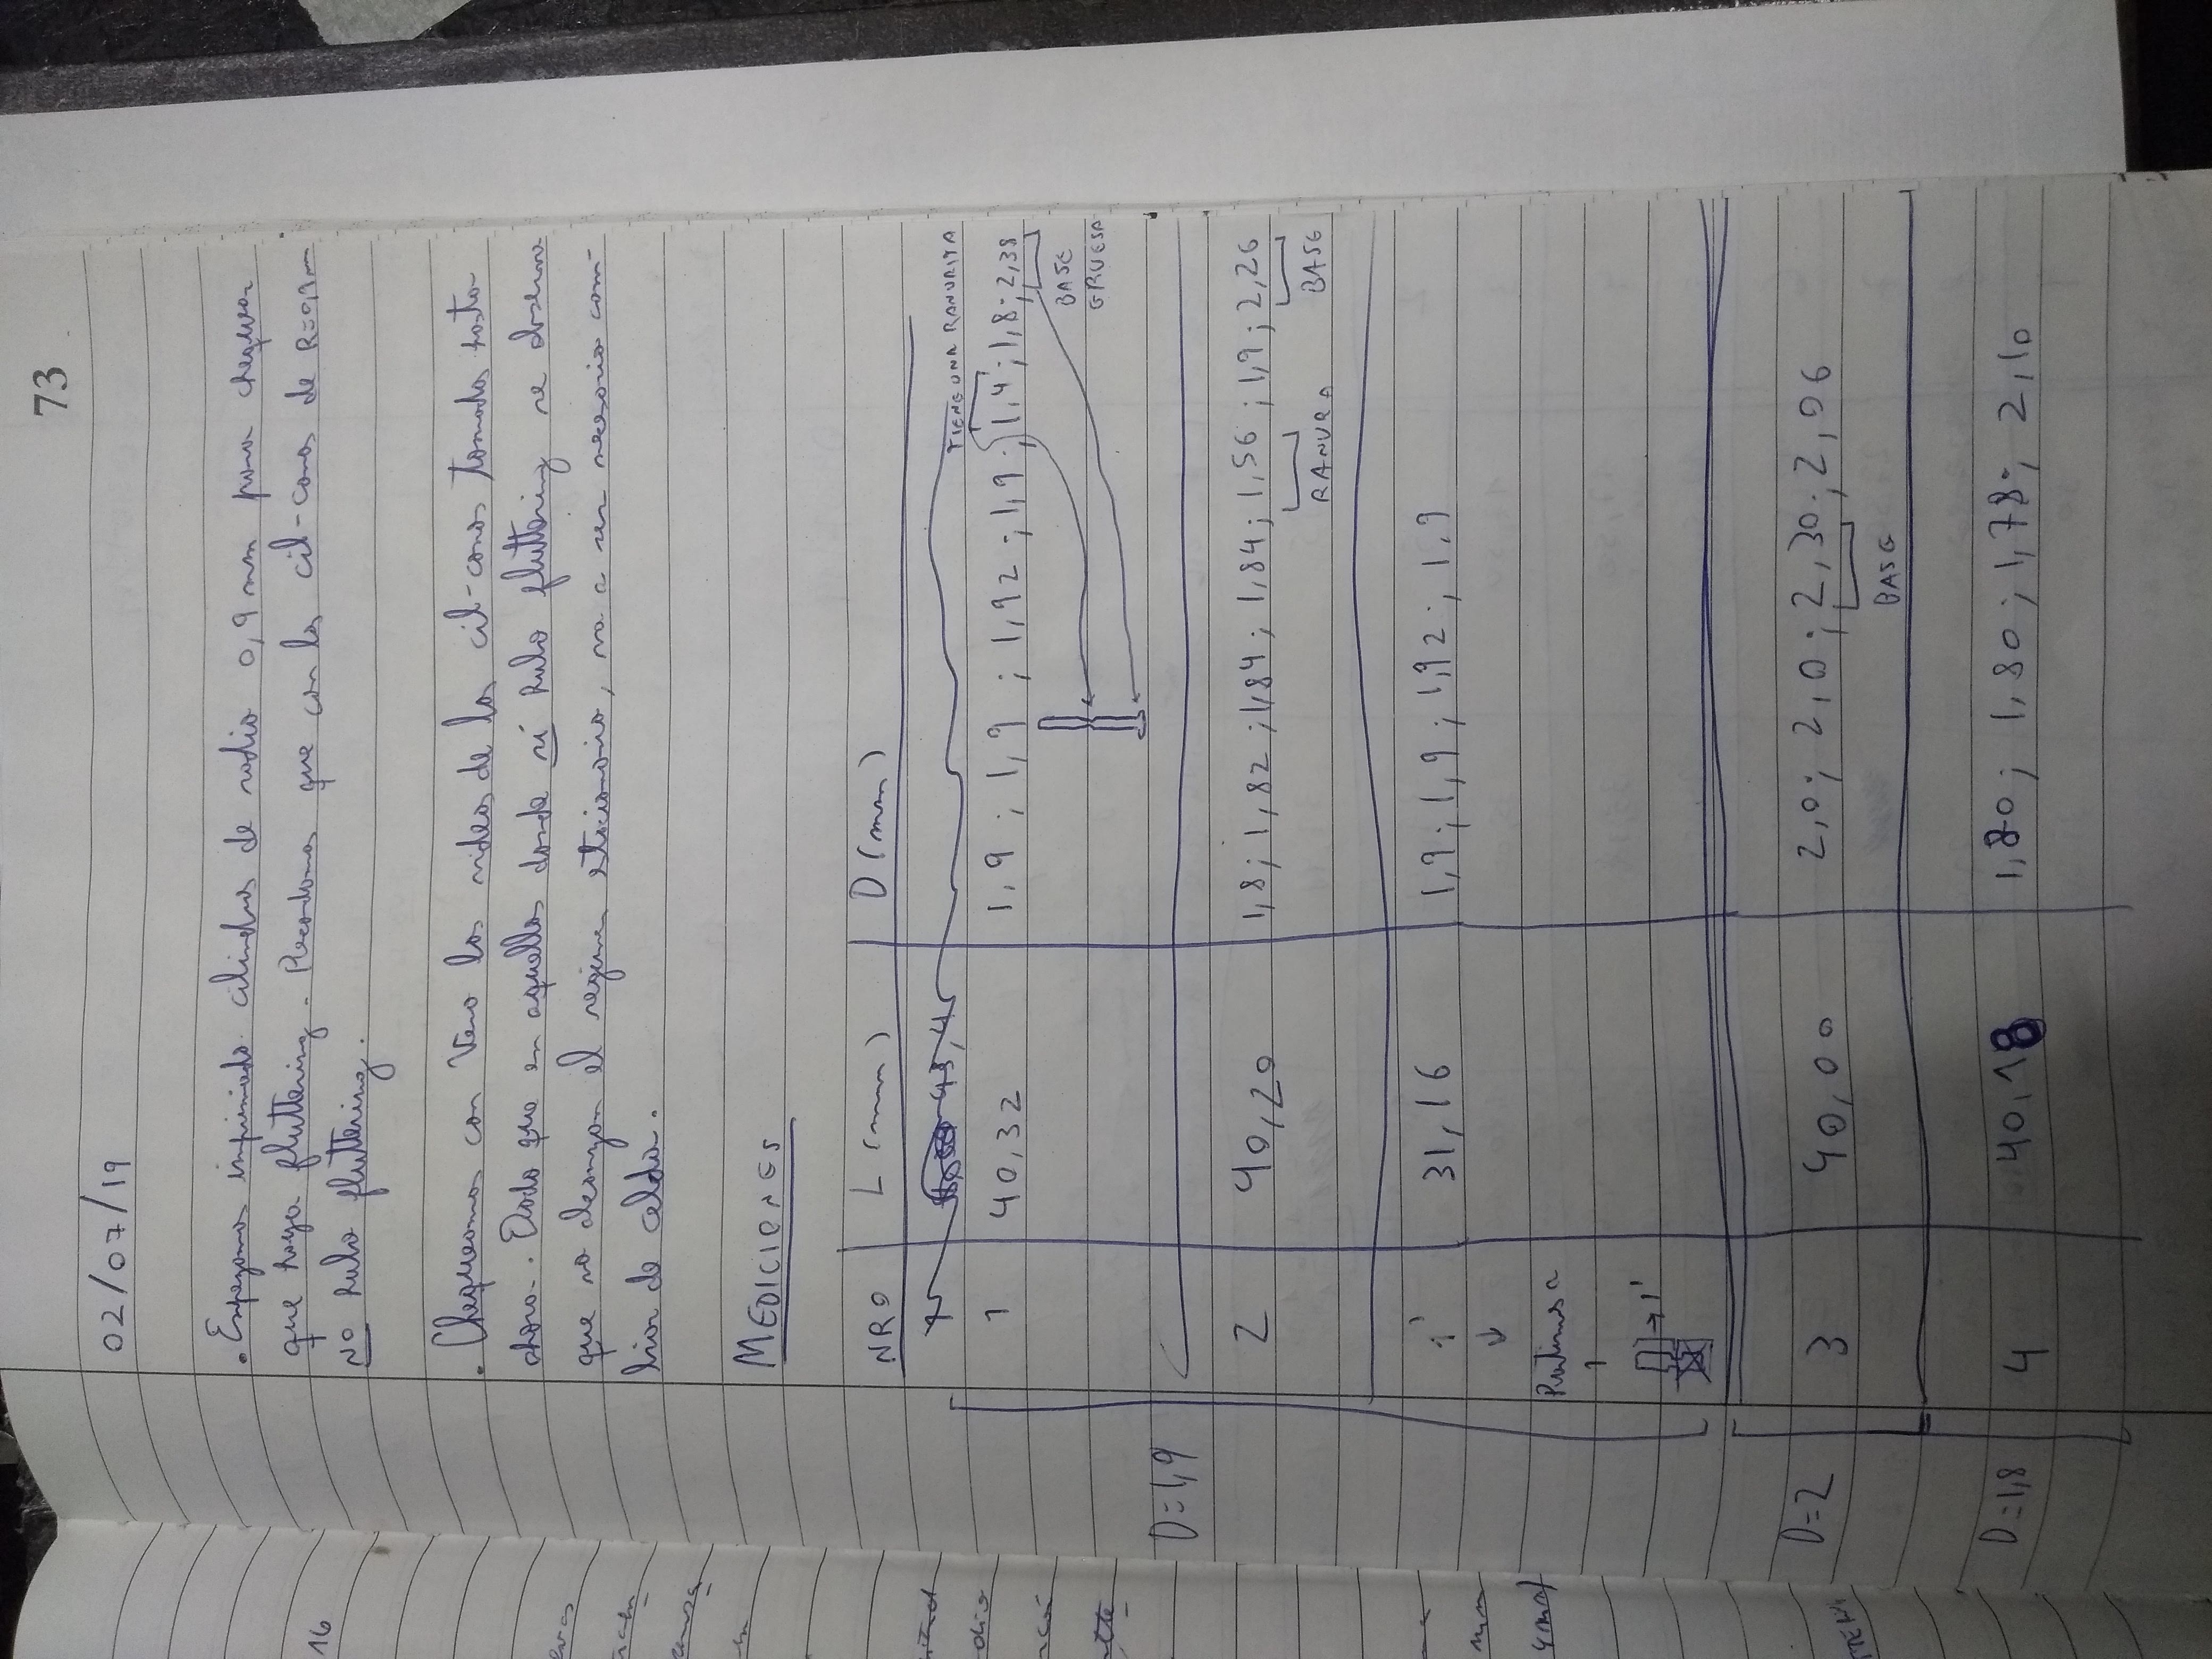 73
02/07/19
. Empezamos imprimiendo cilindros de radio 0,9 mm para chequear
que haya fluttering. Recordamos que con los cil-conos de R=0,9mm
NO hubo fluttering.
. Chequeamos con Vero los videos de los cil-conos tomados hasta
ahora. Dado que en aquellos donde sí hubo fluttering se observa
que no alcanzan el regimen estacionario, va a ser necesario cam-
biar de celda.
MEDICIONES
NRO L (mm) D (mm)
1 43,4
TIENE UNA RANURITA
1 40,32 1,9 ; 1,9 ; 1,92 ; 1,9 ; 1,4 ; 1,8 ; 2,38
BASE
GRUESA
D=1,9
2 40,20 1,8 ; 1,82 ; 1,84 ; 1,84 ; 1,56 ; 1,9 ; 2,26
RANURA BASE
1' 31,16 1,9 ; 1,9 ; 1,92 ; 1,9
Partimos a
1
→ 1'
D=2 3 40,00 2,0 ; 2,0 ; 2,30 ; 2,06
BASE
D=1,8 4 40,18 1,80 ; 1,80 ; 1,78 ; 2,10
16
mm